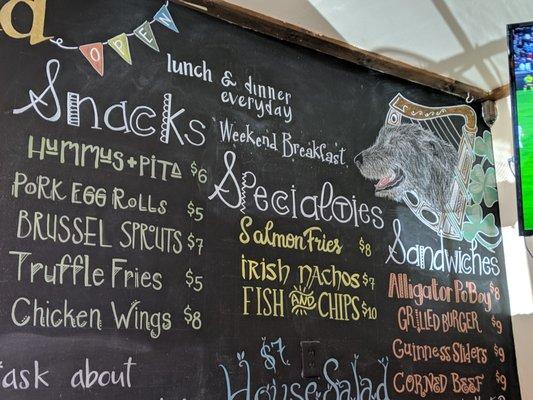 OPEN
lunch & dinner
everyday
Weekend Breakfast
Snacks
Hummus + Pita $6
Pork Egg Rolls $5
Brussel Sprouts $7
Truffle Fries $5
Chicken Wings $8
ask about
Specialties
Salmon Fries $8
Irish Nachos $7
Fish and Chips $10
$7
House Salad
Sandwiches
Alligator Po'Boy $8
Grilled Burger $9
Guinness Sliders $9
Corned Beef $9